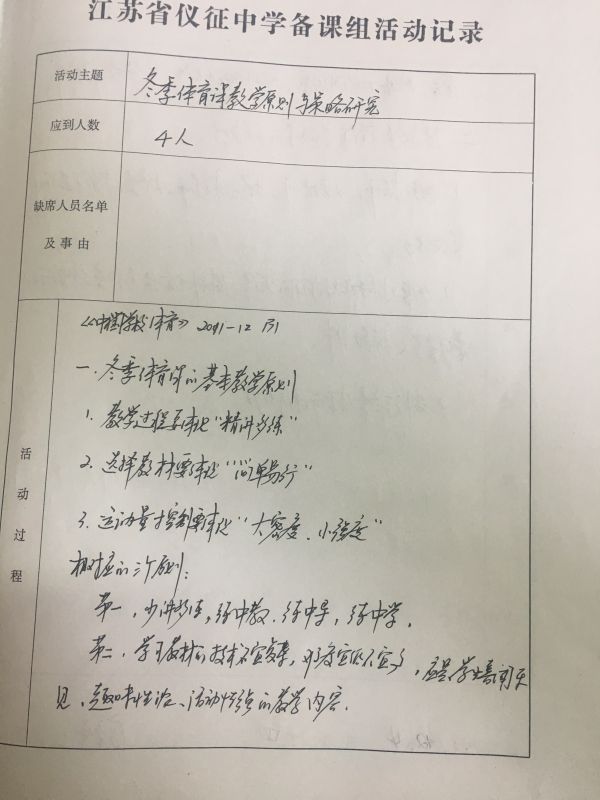 江苏省仪征中学备课组活动记录
活动主题
冬季体育课教学原则与策略研究
应到人数
4人
缺席人员名单
及事由
活动过程
《中国学校体育》2011-12月
一、冬季体育课的基本教学原则
1. 教学过程要体现“精讲多练”
2. 选择教材要体现“简单易行”
3. 运动量控制要体现“大密度、小强度”
相对应的三个原则:
第一,少讲多练,练中教、练中导,练中学。
第二、学习教材的技术不宜复杂,难度宜低不宜高,应是学生喜闻乐
见、趣味性浓、活动性强的教学内容.